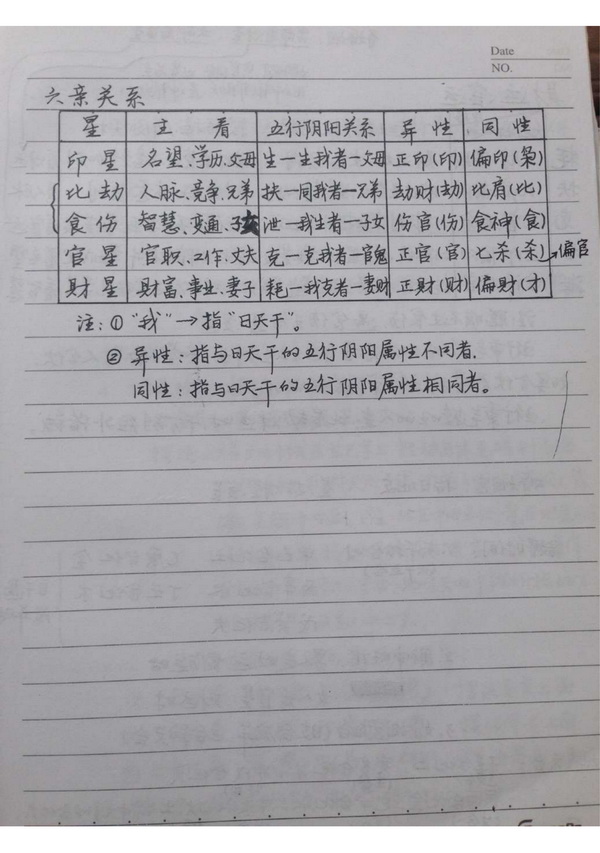 Date
NO.
六亲关系
星 主看 五行阴阳关系 异性 同性
印星 名望、学历、父母 生一生我者一父母 正印(印) 偏印(枭)
比劫 人脉、竞争、兄弟 扶一同我者一兄弟 劫财(劫) 比肩(比)
食伤 智慧、变通、子女 泄一我生者一子女 伤官(伤) 食神(食)
官星 官职、工作、丈夫 克一克我者一官鬼 正官(官) 七杀(杀)→偏官
财星 财富、事业、妻子 耗一我克者一妻财 正财(财) 偏财(才)
注:①“我”→指“日天干”。
②异性:指与日天干的五行阴阳属性不同者.
同性:指与日天干的五行阴阳属性相同者。